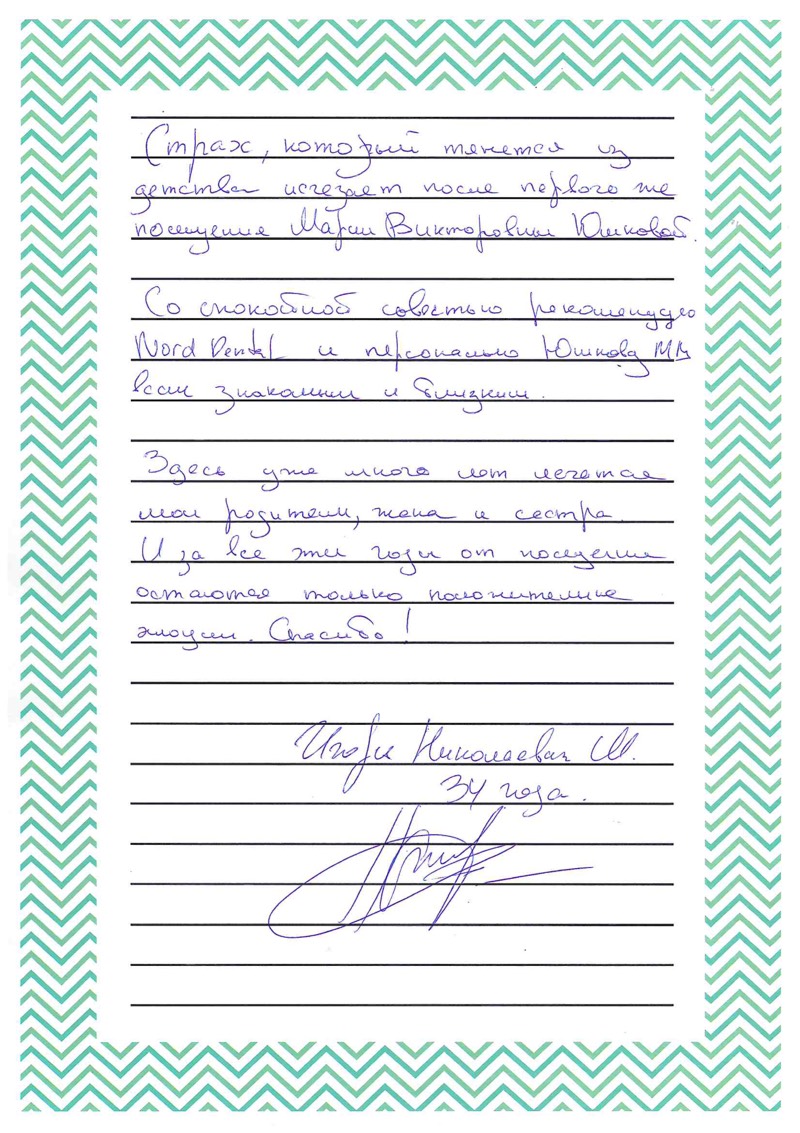 Страх, который тянется из
детства исчезает после первого же
посещения Марии Викторовны Юшковой.
Со спокойной совестью рекомендую
Nord Dental и персонально Юшкову МВ
всем знакомым и близким.
Здесь уже много лет лечатся
мои родители, жена и сестра.
И за все эти годы от посещения
остаются только положительные
эмоции. Спасибо!
Игорь Николаевич Ш.
34 года.